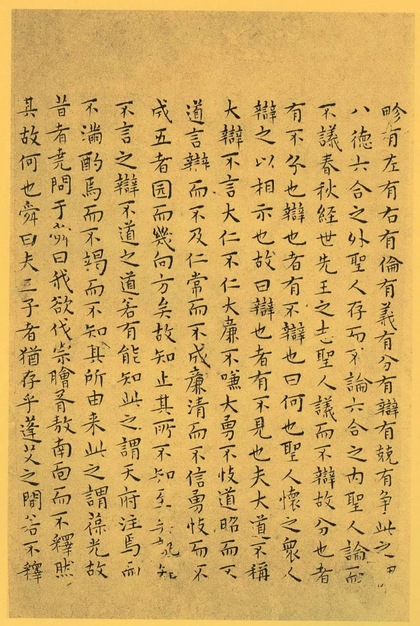 畛有左有右有倫有義有分有辯有競有争此之
八德六合之外聖人存而不論六合之内聖人論而
不議春秋經世先王之志聖人議而不辯故分也者
有不分也辯也者有不辯也曰何也聖人懷之衆人
辯之以相示也故曰辯也者有不見也夫大道不稱
大辯不言大仁不仁大廉不嗛大勇不忮道昭而不
道言辯而不及仁常而不成廉清而不信勇忮而不
成五者园而幾向方矣故知止其所不知至矣孰知
不言之辯不道之道若有能知此之謂天府注焉而
不滿酌焉而不竭而不知其所由来此之謂葆光故
昔者堯問于舜曰我欲伐宗膾胥敖南面而不釋然
其故何也舜曰夫三子者猶存乎蓬艾之間若不釋